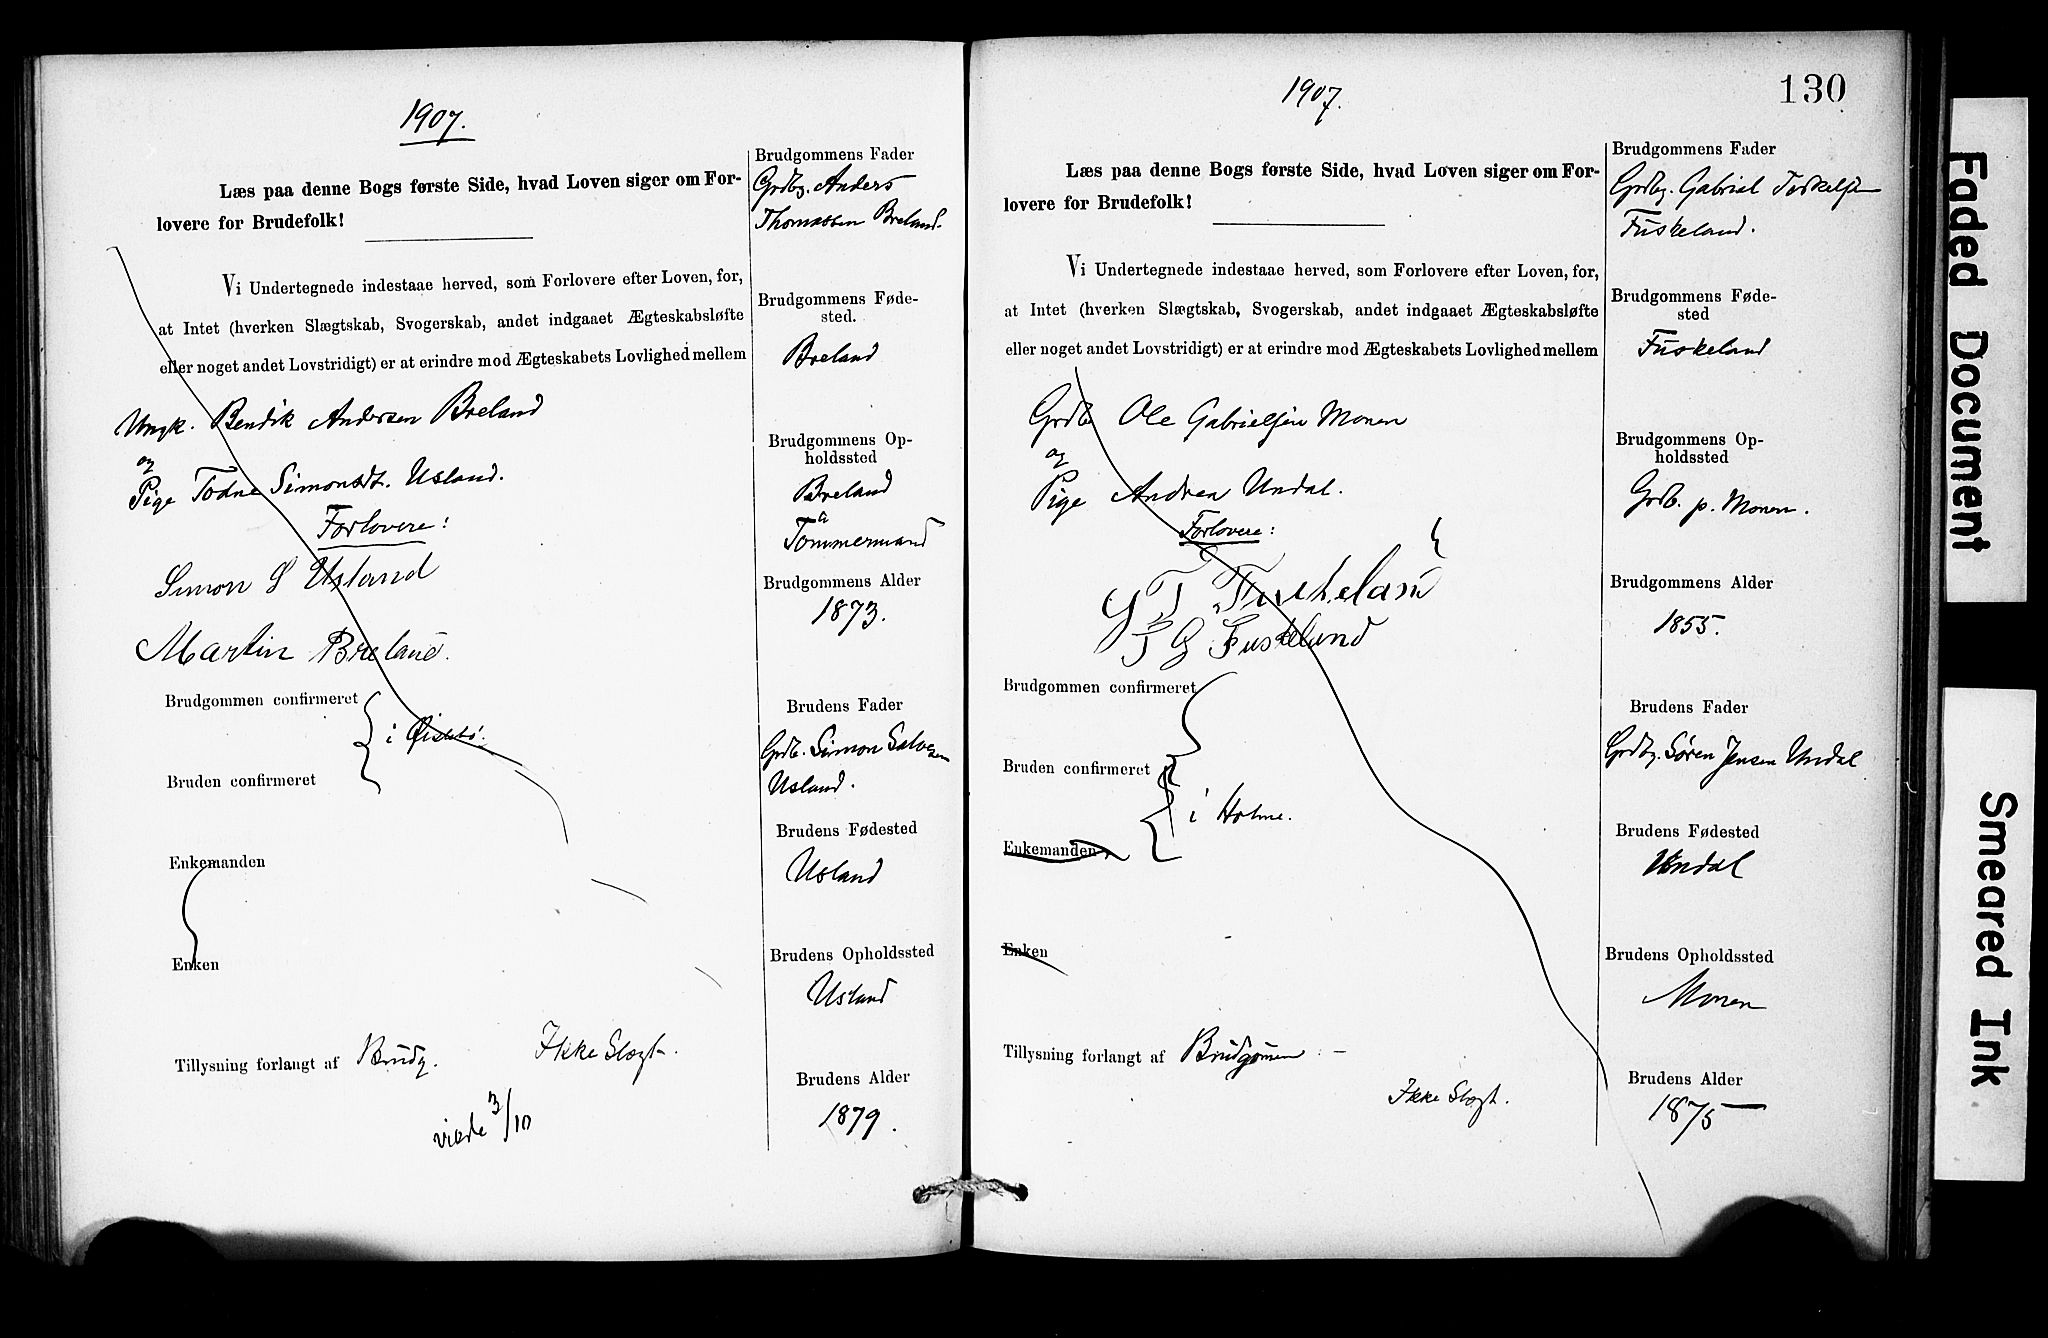 1907.
Læs paa denne Bogs første Side, hvad Loven siger om For-
lovere for Brudefolk!
Vi Undertegnede indestaae herved, som Forlovere efter Loven, for,
at Intet (hverken Slægtskab, Svogerskab, andet indgaaet Ægteskabsløfte
eller noget andet Lovstridigt) er at erindre mod Ægteskabets Lovlighed mellem
Ungk. Bendik Andersen Breland
og
Pige Todne Simonsdt. Usland.
Forlovere:
Simon S Usland
Martin Breland.
Brudgommen confirmeret
i Øislebø.
Bruden confirmeret
Enkemanden
Enken
Tillysning forlangt af Brudg. Ikke Slægt.
viede 3/10
Brudgommens Fader
Grdbg. Anders
Thomassen Breland.
Brudgommens Føde-
sted.
Breland
Brudgommens Op-
holdssted
Breland
Tømmermand
Brudgommens Alder
1873.
Brudens Fader
Grdb. Simon Salvesen
Usland.
Brudens Fødested
Usland
Brudens Opholdssted
Usland
Brudens Alder
1879.
1907.
130
Læs paa denne Bogs første Side, hvad Loven siger om For-
lovere for Brudefolk!
Vi Undertegnede indestaae herved, som Forlovere efter Loven, for,
at Intet (hverken Slægtskab, Svogerskab, andet indgaaet Ægteskabsløfte
eller noget andet Lovstridigt) er at erindre mod Ægteskabets Lovlighed mellem
Grdb. Ole Gabrielsen Monen
og
Pige Andrea Undal.
Forlovere:
G T Fuskeland
T G Fuskeland
Brudgommen confirmeret
Bruden confirmeret
i Holme.
Enkemanden
Enken
Tillysning forlangt af Brudgommen. –
Ikke Slægt.
Brudgommens Fader
Grdbg. Gabriel Torkelsen
Fuskeland.
Brudgommens Føde-
sted
Fuskeland
Brudgommens Op-
holdssted
Grdb. p. Monen.
Brudgommens Alder
1855.
Brudens Fader
Grdbg. Søren Jensen Undal
Brudens Fødested
Undal
Brudens Opholdssted
Monen
Brudens Alder
1875
Faded Document
Smeared Ink